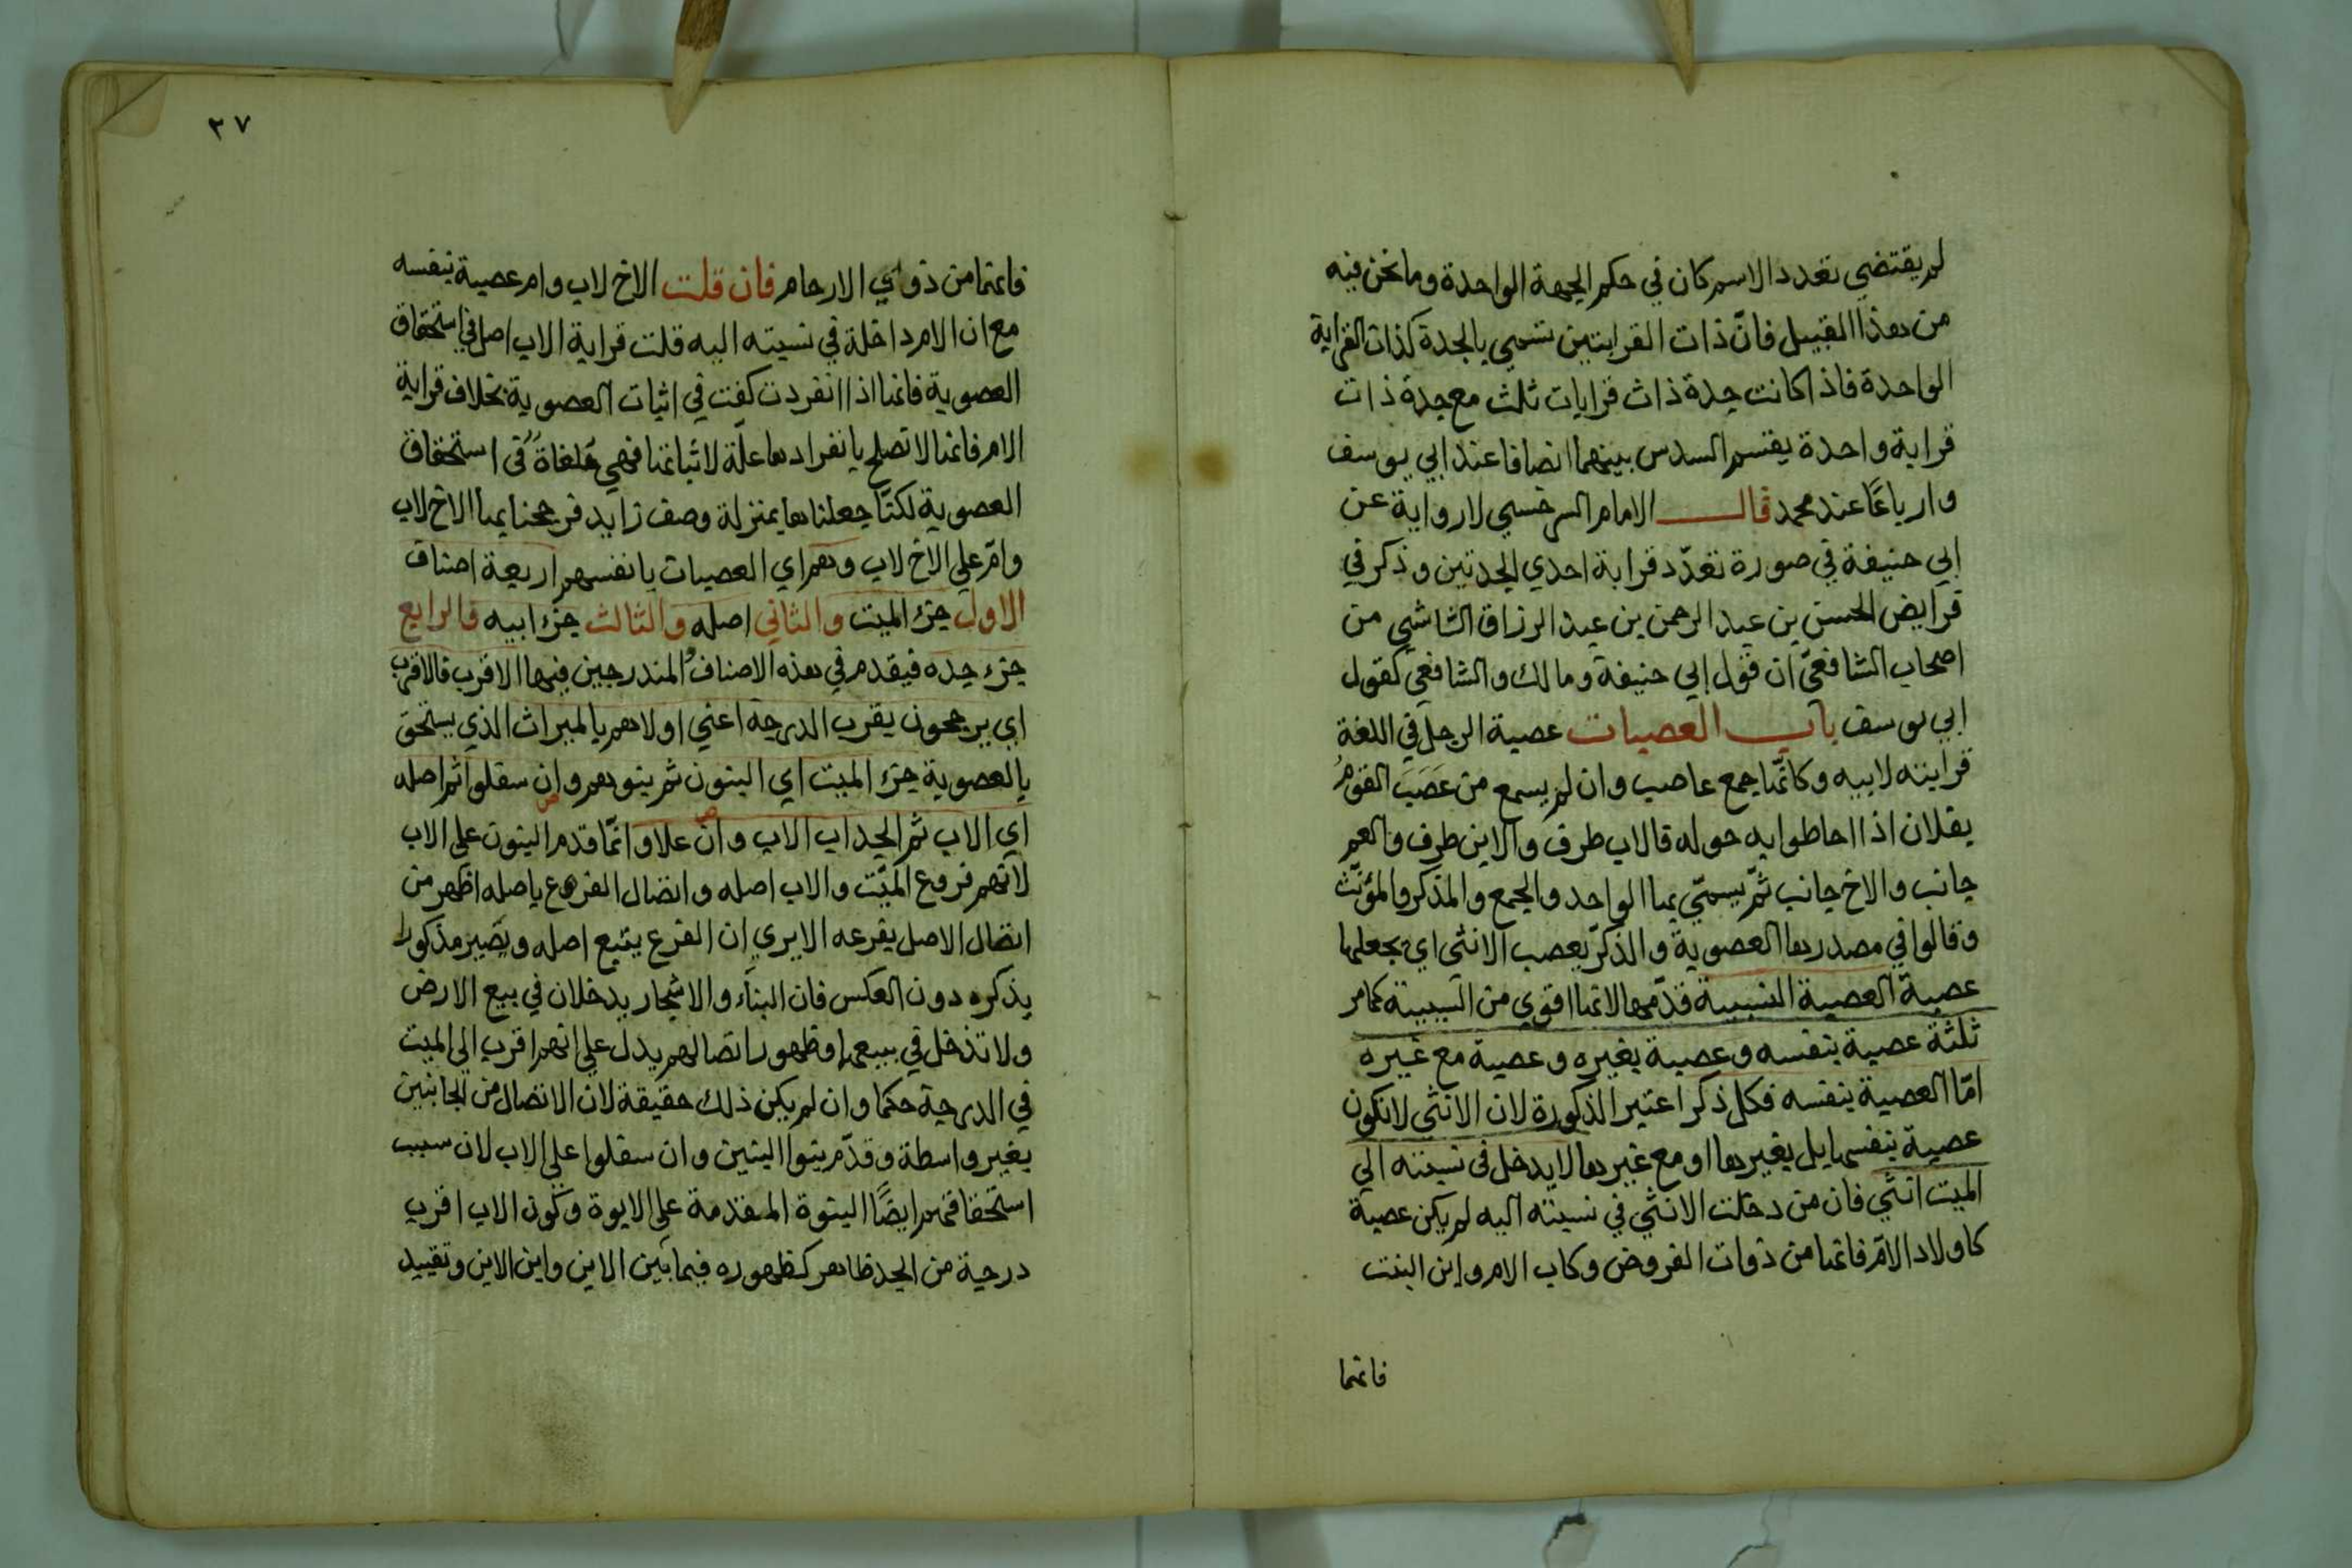 لم يقتضي تعدد الاسم كان في حكم الجهة الواحدة وما نحن فيه
من هذا القبيل فانّ ذات القرابتين تسمي بالجدة كذات القرابة
الواحدة فاذا كانت جدة ذات قرابات ثلث مع جدة ذات
قرابة واحدة يقسم السدس بينهما انصافا عند ابي يوسف
وارباعًا عند محمد قال الامام السرخسي لا رواية عن
ابي حنيفة في صورة تعدّد قرابة احدي الجدتين وذكر في
فرايض الحسن بن عبد الرحمن بن عبد الرزاق الشاشي من
اصحاب الشافعيّ ان قول ابي حنيفة ومالك والشافعي كقول
ابي يوسف باب العصبات عصبة الرجل في اللغة
قرابته لابيه وكانّها جمع عاصب وان لم يسمع من عَصَبَ القومُ
بفلان اذا احاطوا به حوله فالاب طرف والابن طرف والعم
جانب والاخ جانب ثمّ يسمّي بها الواحد والجمع والمذكر والمؤنّث
وقالوا في مصدرها العصوبة والذكر يعصب الانثي اي يجعلها
عصبة العصبة النسبية قدّمها لانها اقوي من السببية كما مر
ثلثة عصبة بنفسه وعصبة بغيره وعصبة مع غيره
امّا العصبة بنفسه فكل ذكر اعتبر الذكورة لان الانثي لا تكون
عصبة بنفسها بل بغيرها او مع غيرها لا يدخل في نسبته الي
الميت انثي فان من دخلت الانثي في نسبته اليه لم يكن عصبة
كاولاد الامّ فانها من ذوات الفروض وكاب الام وابن البنت
فانها
٢٧
فانها من ذوي الارحام فان قلت الاخ لاب وام عصبة بنفسه
مع ان الام داخلة في نسبته اليه قلت قرابة الاب اصل في استحقاق
العصوبة فانها اذا انفردت كفت في اثبات العصوبة بخلاف قرابة
الام فانها لا تصلح بانفرادها علّة لاثباتها فهي مُلغاةٌ في استحقاق
العصوبة لكنّا جعلناها بمنزلة وصف زايد فرجحنا بها الاخ لاب
وامّ علي الاخ لاب وهم اي العصبات بانفسهم اربعة اصناف
الاول جزء الميت والثاني اصله والثالث جزء ابيه والرابع
جزء جده فيقدم في هذه الاصناف والمندرجين فيها الاقرب فالاقرب
اي يرجحون بقرب الدرجة اعني اولاهم بالميراث الذي يستحق
بالعصوبة جزء الميت اي البنون ثم بنوهم وان سفلوا ثم اصله
اي الاب ثم الجد اب الاب وان علا وانّما قدم البنون علي الاب
لانّهم فروع الميّت والاب اصله واتصال الفرع باصله اظهر من
اتصال الاصل بفرعه الا يري ان الفرع يتبع اصله ويصير مذكورا
بذكره دون العكس فان البناء والاشجار يدخلان في بيع الارض
ولا تدخل في بيعهما وظهور اتصالهم يدل علي انهم اقرب الي الميت
في الدرجة حكما وان لم يكن ذلك حقيقة لان الاتصال من الجانبين
بغير واسطة وقدّم بنوا البنين وان سفلوا علي الاب لان سبب
استحقاقهم ايضًا البنوة المقدمة علي الابوة وكون الاب اقرب
درجة من الجد ظاهر كظهوره فيما بين الابن وابن الابن وتقييد